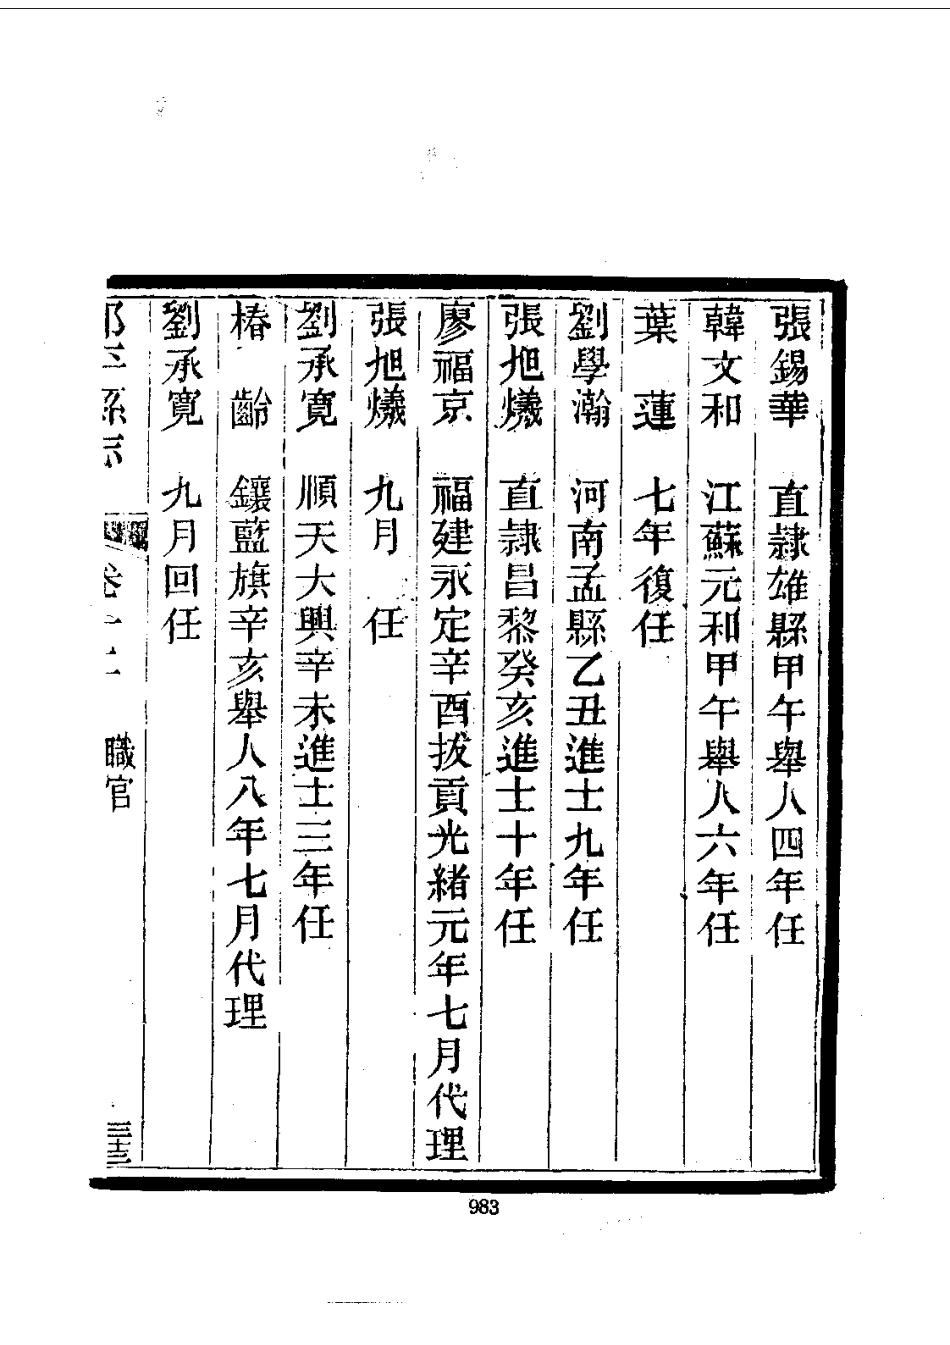 張錫華 直隸雄縣甲午舉人四年任
韓文和 江蘇元和甲午舉人六年任
葉 蓮 七年復任
劉學瀚 河南孟縣乙丑進士九年任
張旭爔 直隸昌黎癸亥進士十年任
廖福京 福建永定辛酉拔貢光緒元年七月代理
張旭爔 九月 任
劉承寬 順天大興辛未進士三年任
椿 齡 鑲藍旗辛亥舉人八年七月代理
劉承寬 九月回任
縣志 卷十二 職官 三十三
983